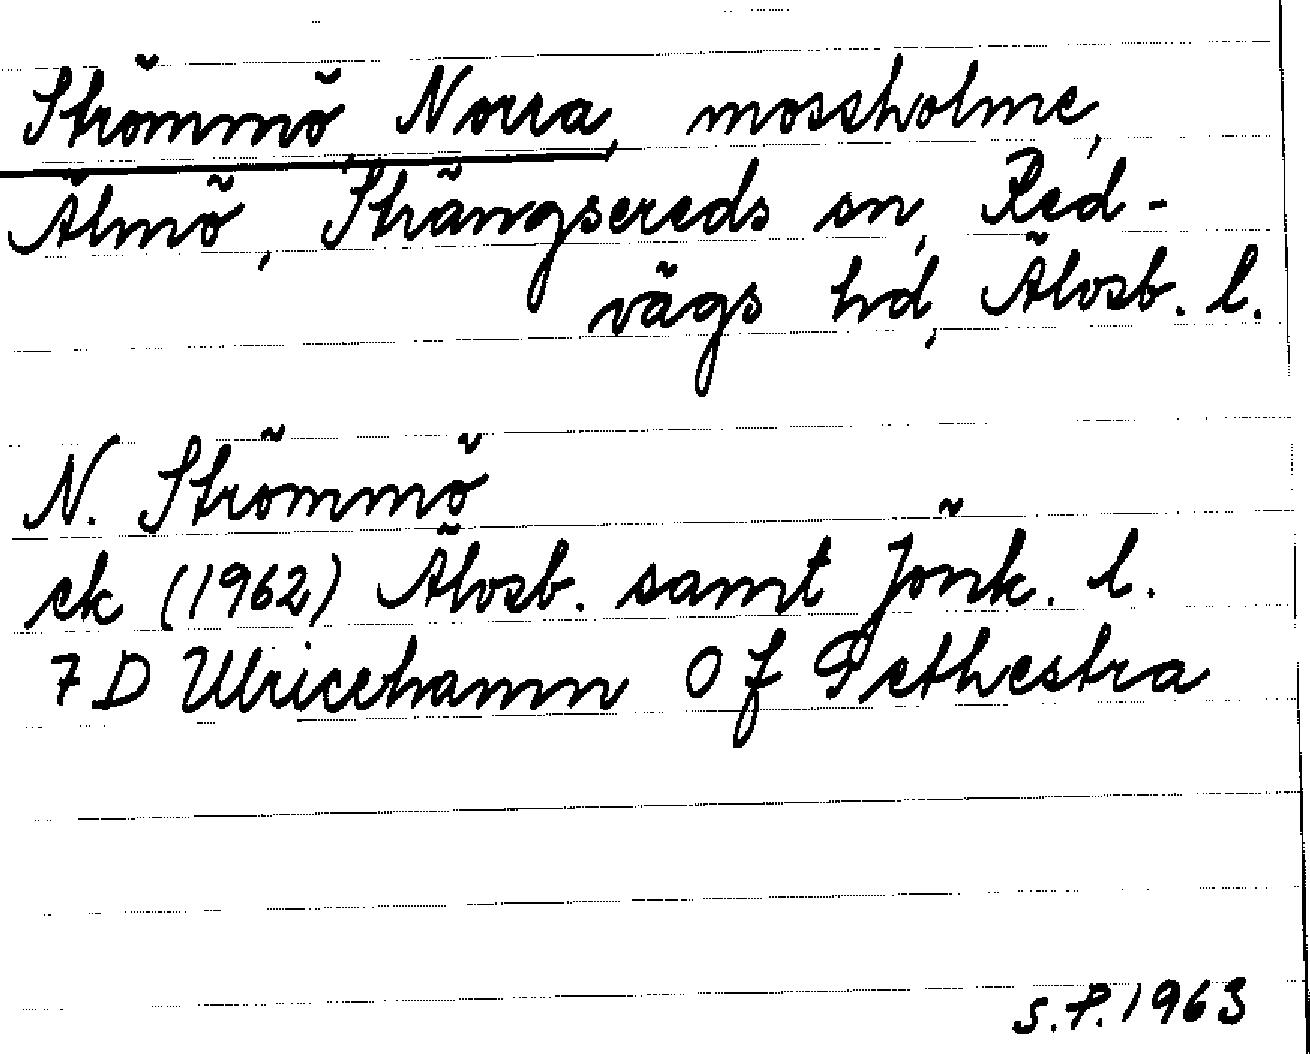 Strömmö, Norra, mossholme,
Älmö, Strängsereds sn, Red-
vägs hd, Älvsb. l.
N. Strömmö
ek (1962) Älvsb. samt Jönk. l.
7 D Ulricehamn 0 f Grethestra
s.P. 1963